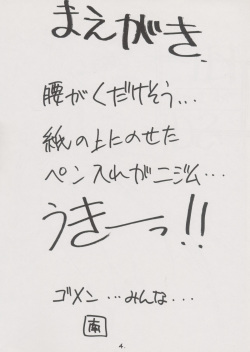 まえがき.
腰がくだけそう...
紙の上にのせた
ペン入れがニジム...
うきーっ!!
ゴメン...みんな...
南
4.